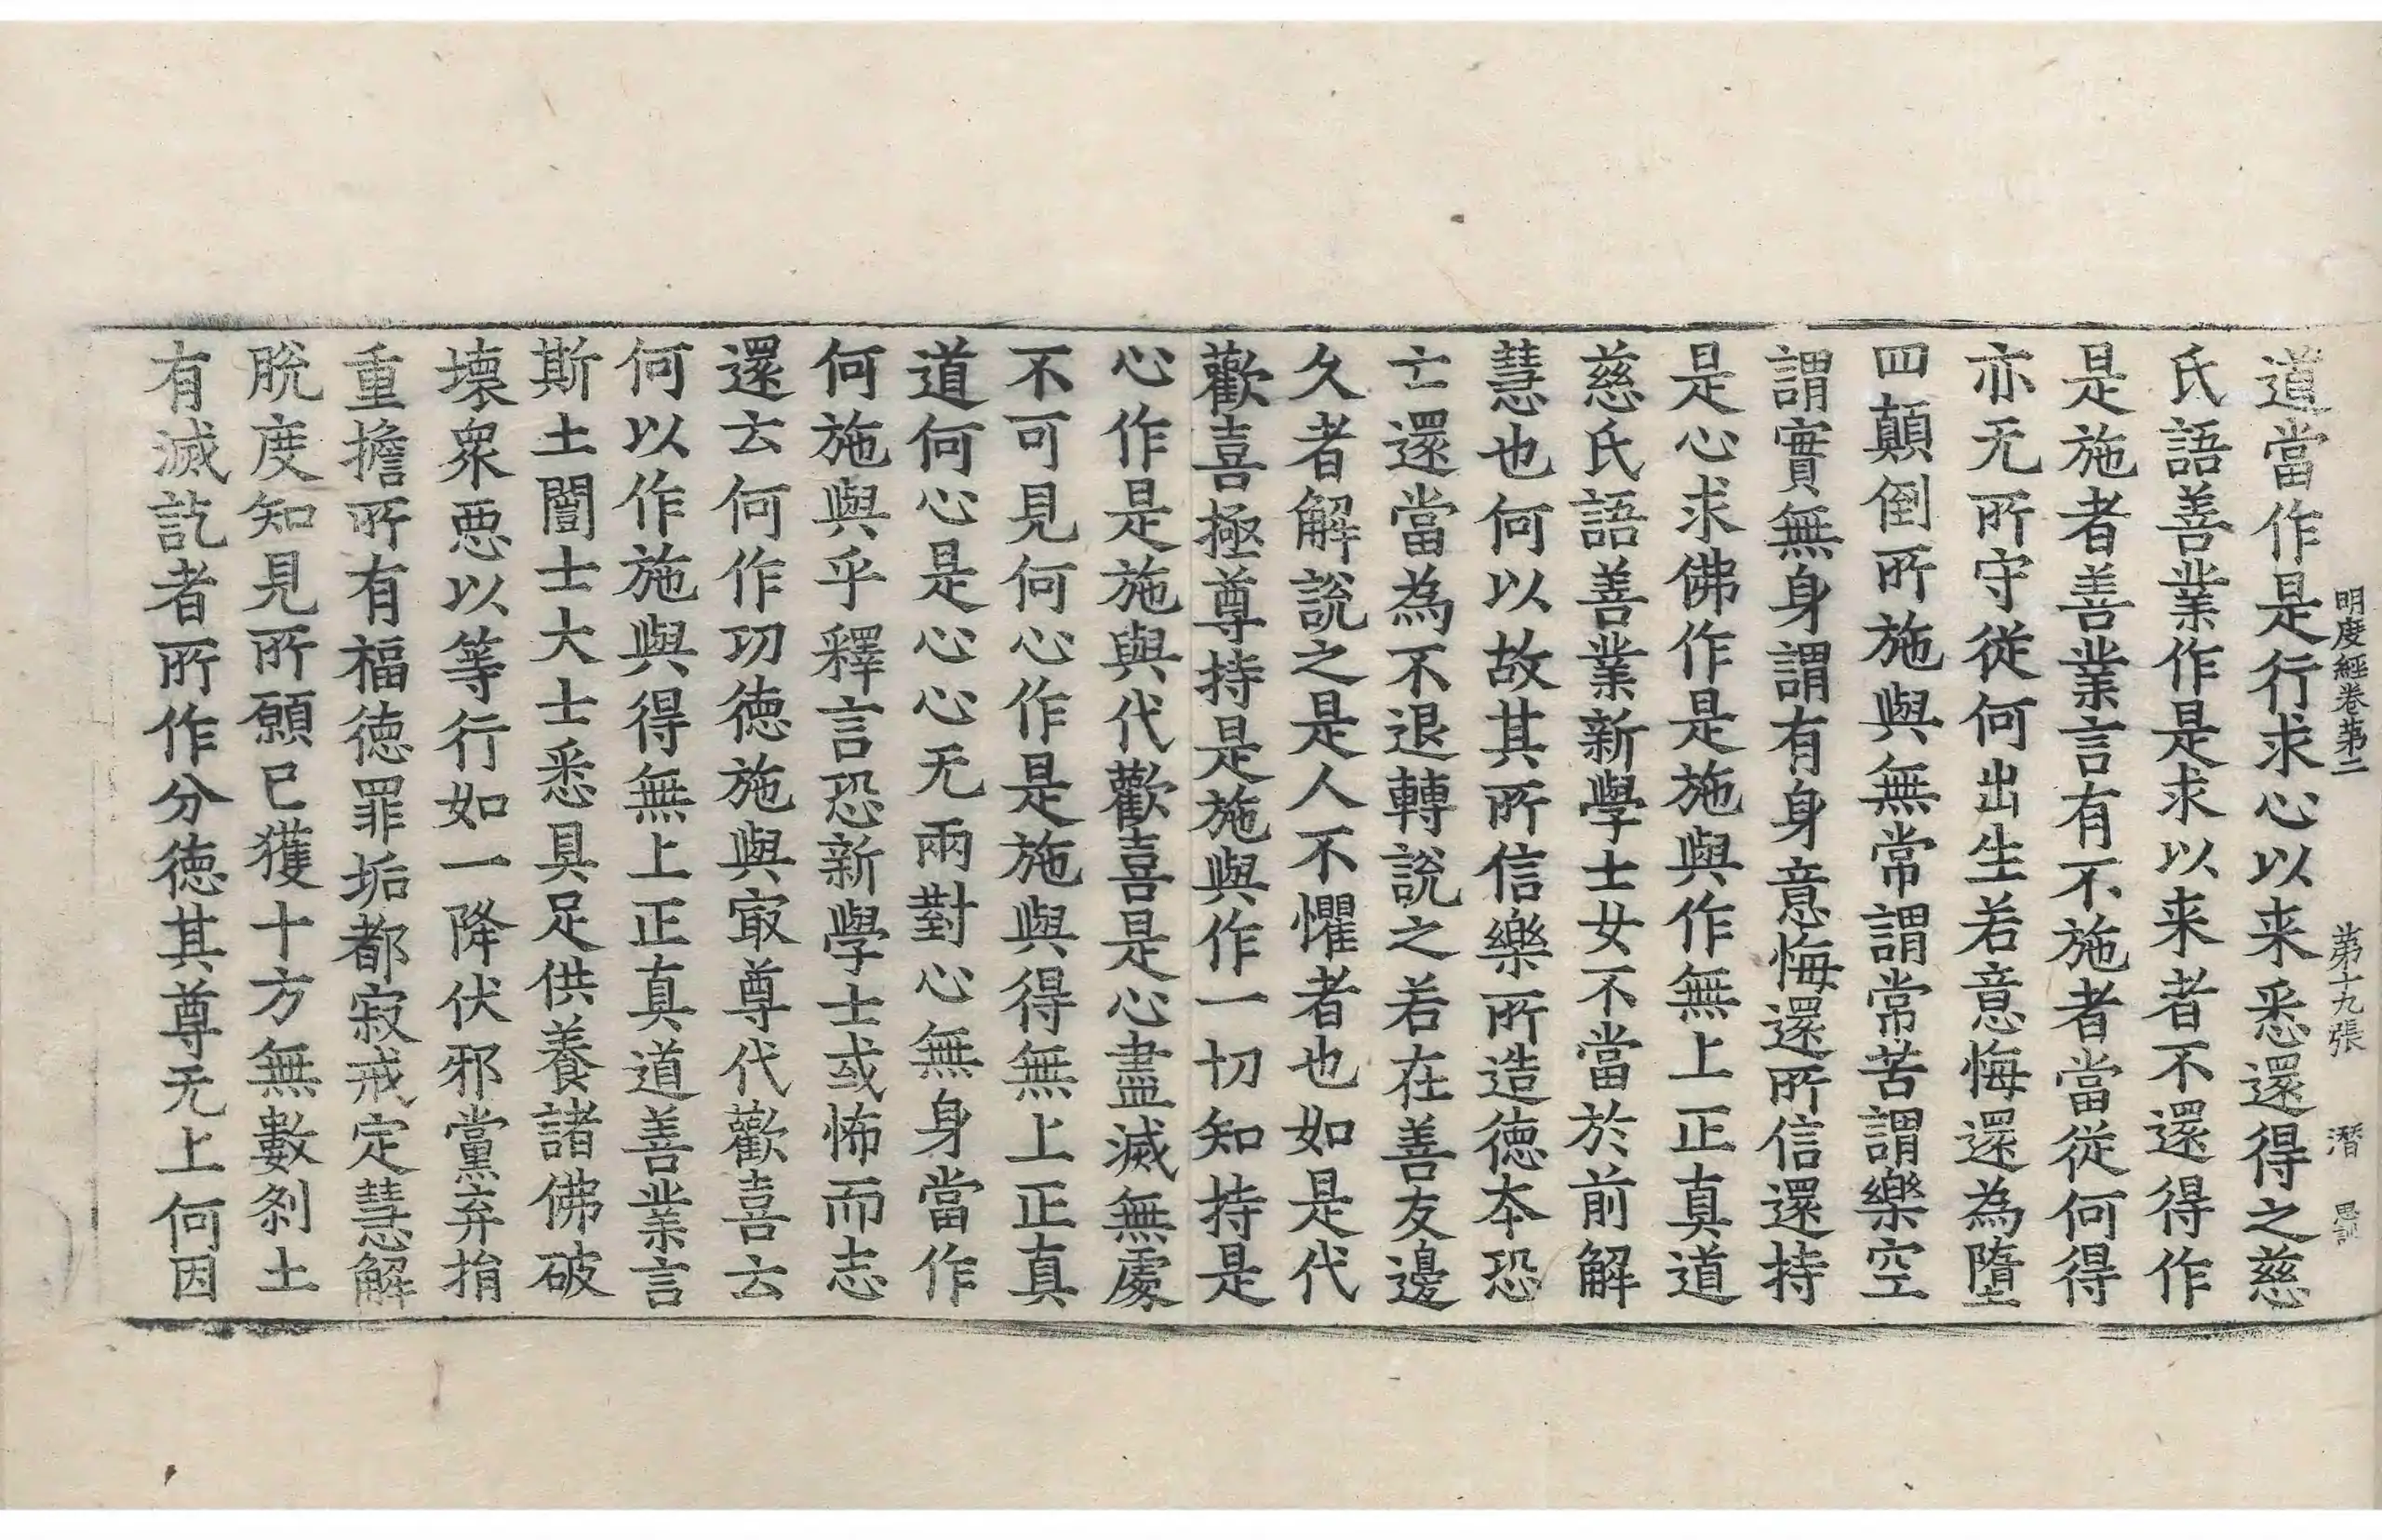 明度經卷第二　第十九張　潛
道當作是行求心以来悉還得之慈
氏語善業作是求以来者不還得作
是施者善業言有不施者當從何得
亦无所守從何出生若意悔還為墮
四顛倒所施與無常謂常苦謂樂空
謂實無身謂有身意悔還所信還持
是心求佛作是施與作無上正真道
慈氏語善業新學士女不當於前解
慧也何以故其所信樂所造徳本恐
亡還當為不退轉說之若在善友邊
久者解說之是人不懼者也如是代
歡喜極尊持是施與作一切知持是
心作是施與代歡喜是心盡滅無處
不可見何心作是施與得無上正真
道何心是心心无兩對心無身當作
何施與乎釋言恐新學士或怖而志
還去何作功徳施與㝡尊代歡喜云
何以作施與得無上正真道善業言
斯土闓士大士悉具足供養諸佛破
壞衆惡以等行如一降伏邪黨弃捐
重擔所有福徳罪垢都寂戒定慧解
脫度知見所願已獲十方無數剎土
有滅訖者所作分徳其尊无上何因